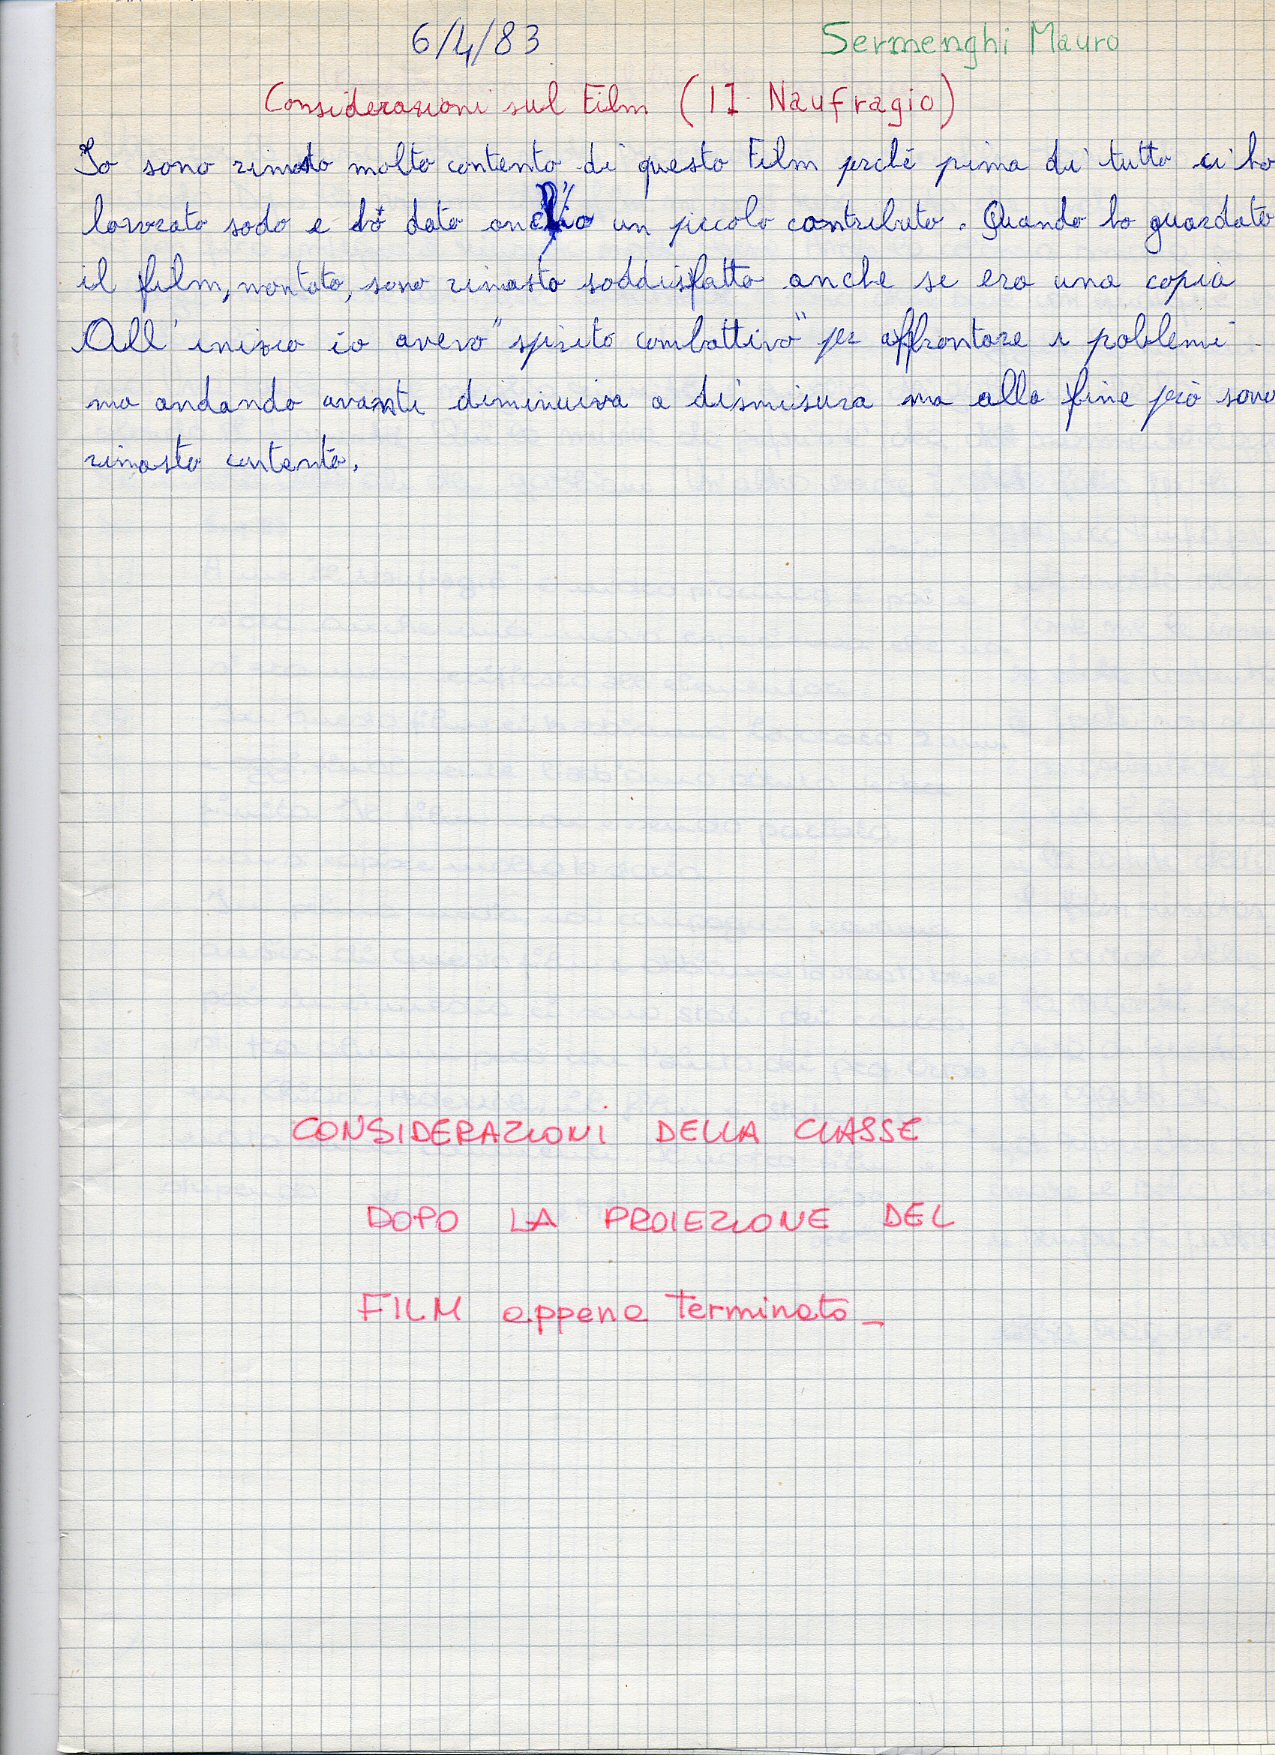 6/4/83 Sermenghi Mauro
Considerazioni sul Film (Il Naufragio)
Io sono rimasto molto contento di questo Film perché prima di tutto ci ho
lavorato sodo e ho dato anch'io un piccolo contributo. Quando ho guardato
il film, montato, sono rimasto soddisfatto anche se era una copia
All'inizio io avevo "spirito combattivo" per affrontare i poblemi
ma andando avanti diminuiva a dismisura ma alla fine però sono
rimasto contento.
CONSIDERAZIONI DELLA CLASSE
DOPO LA PROIEZIONE DEL
FILM appena terminato_